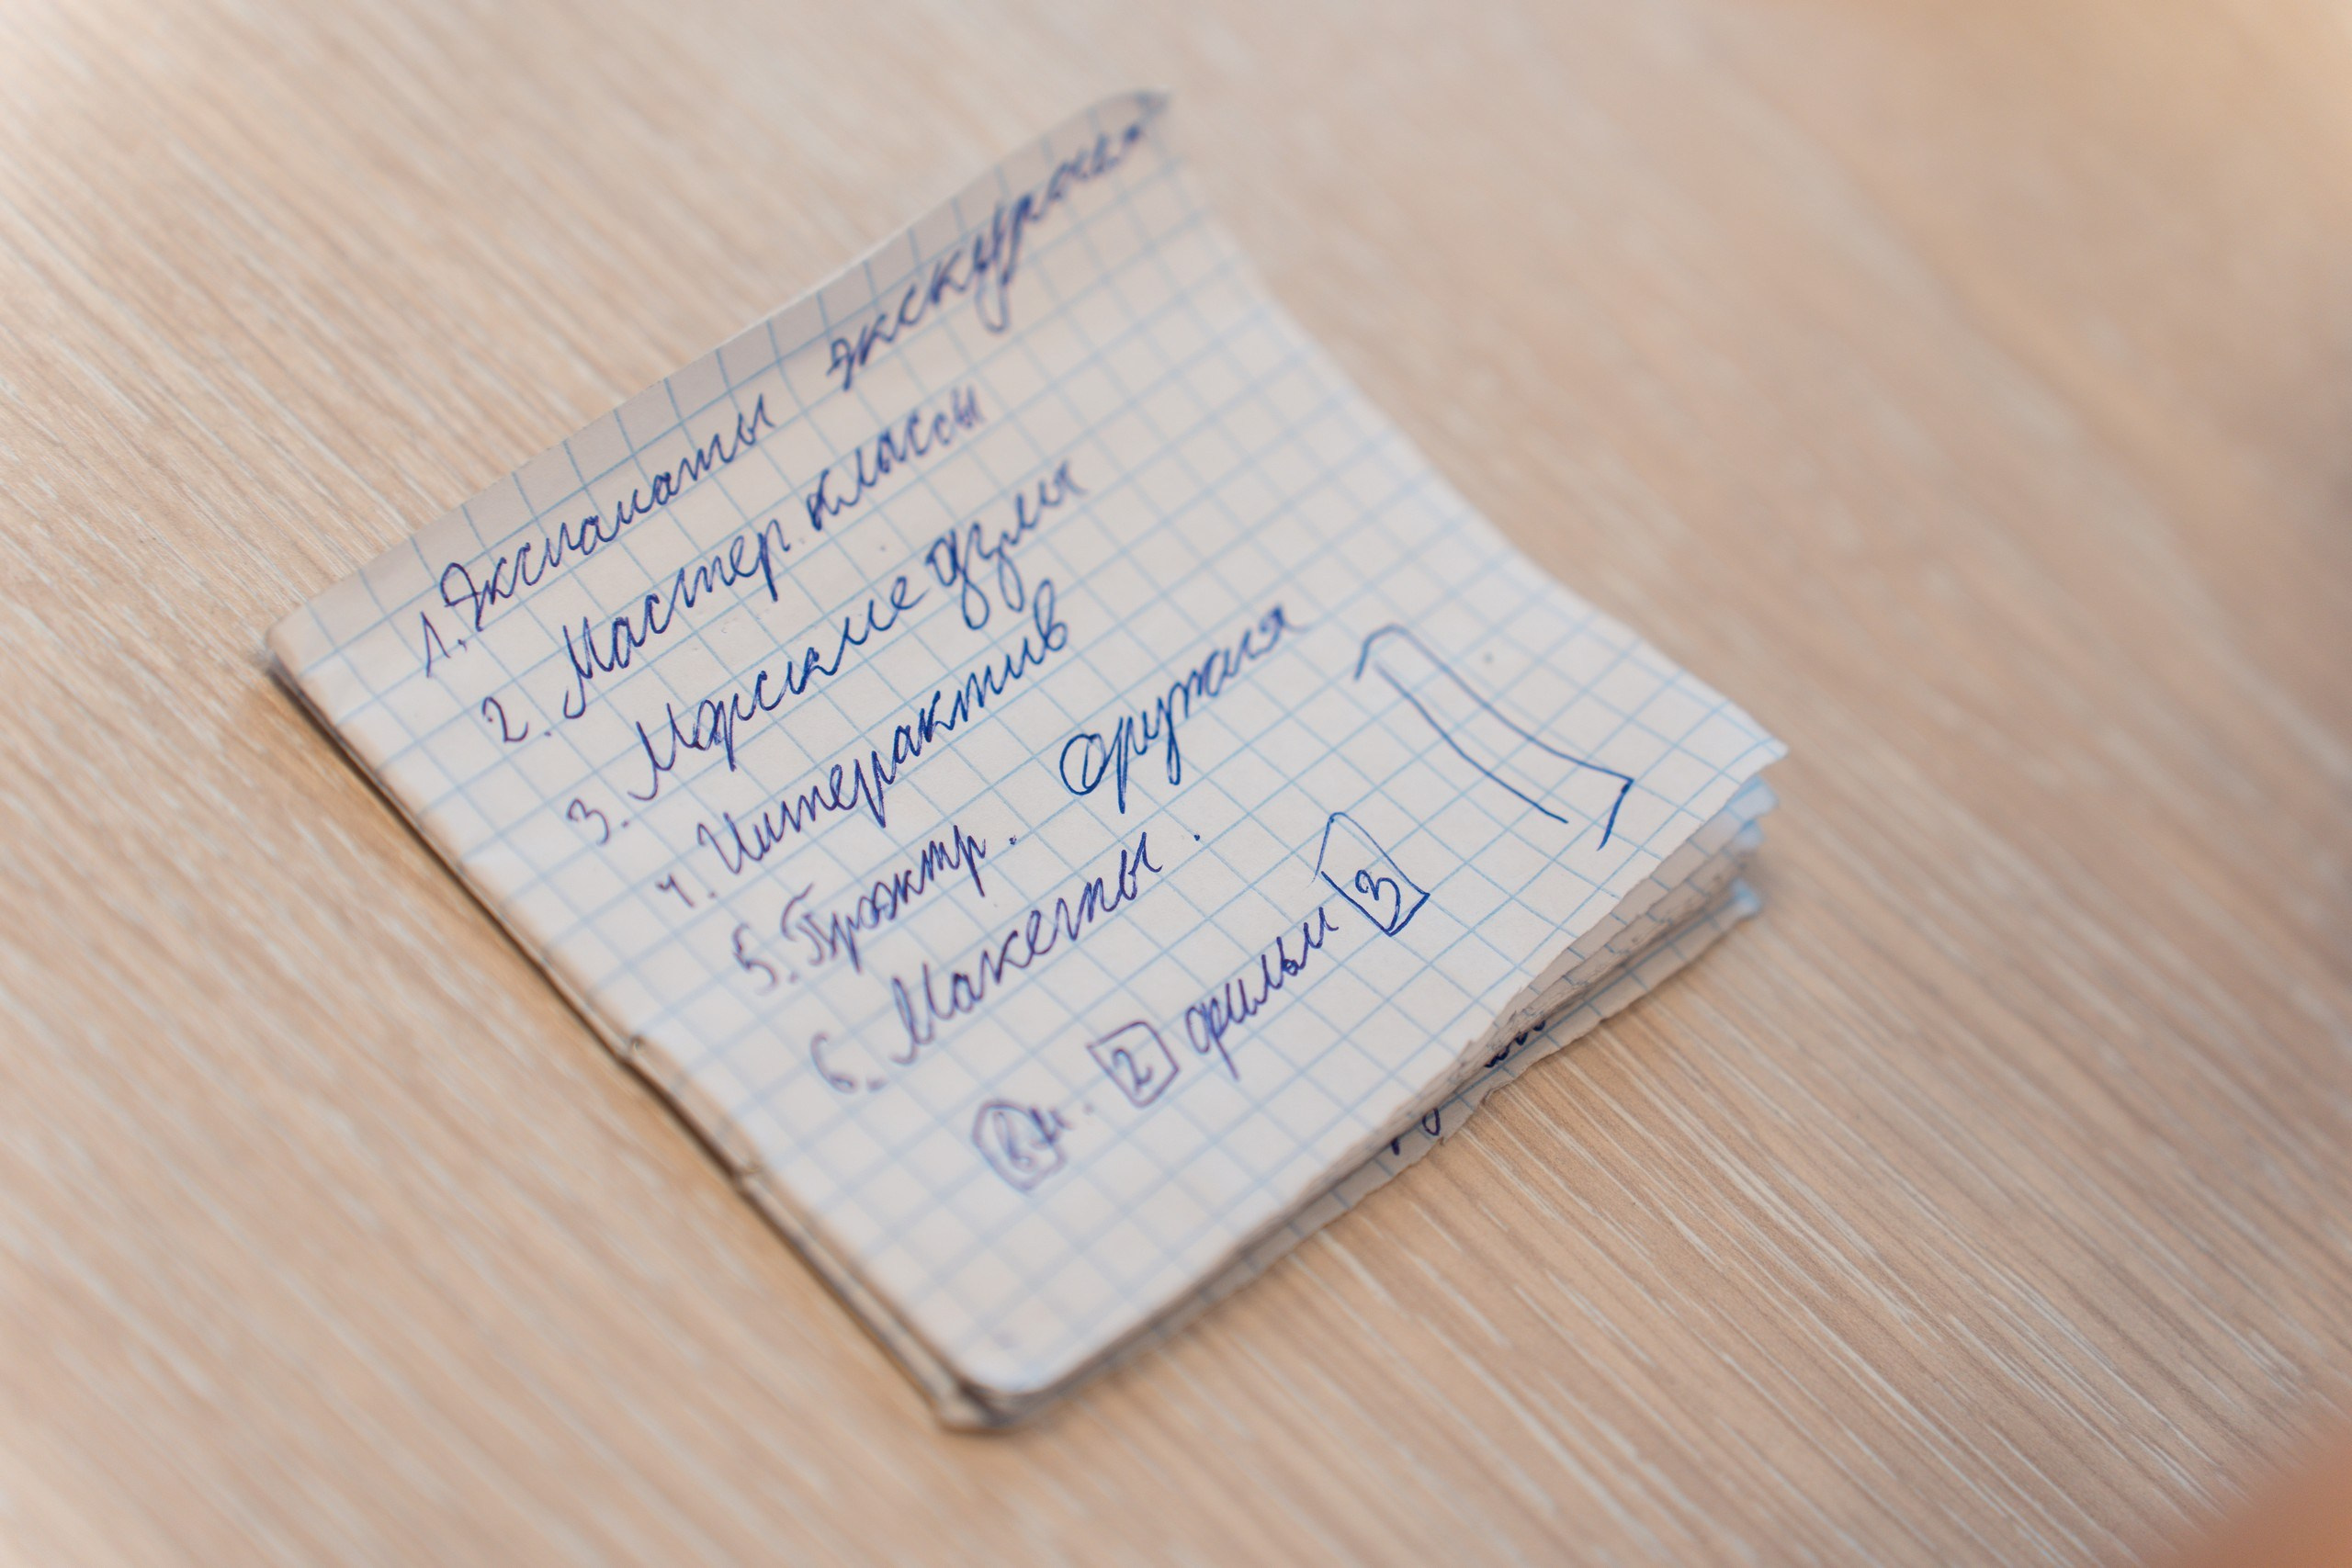 1. Экспонаты экскурсия
2. Мастер. классы
3. Морские узлы
4. Интерактив
5. Оружия
6. Макеты.
2 фильм 3